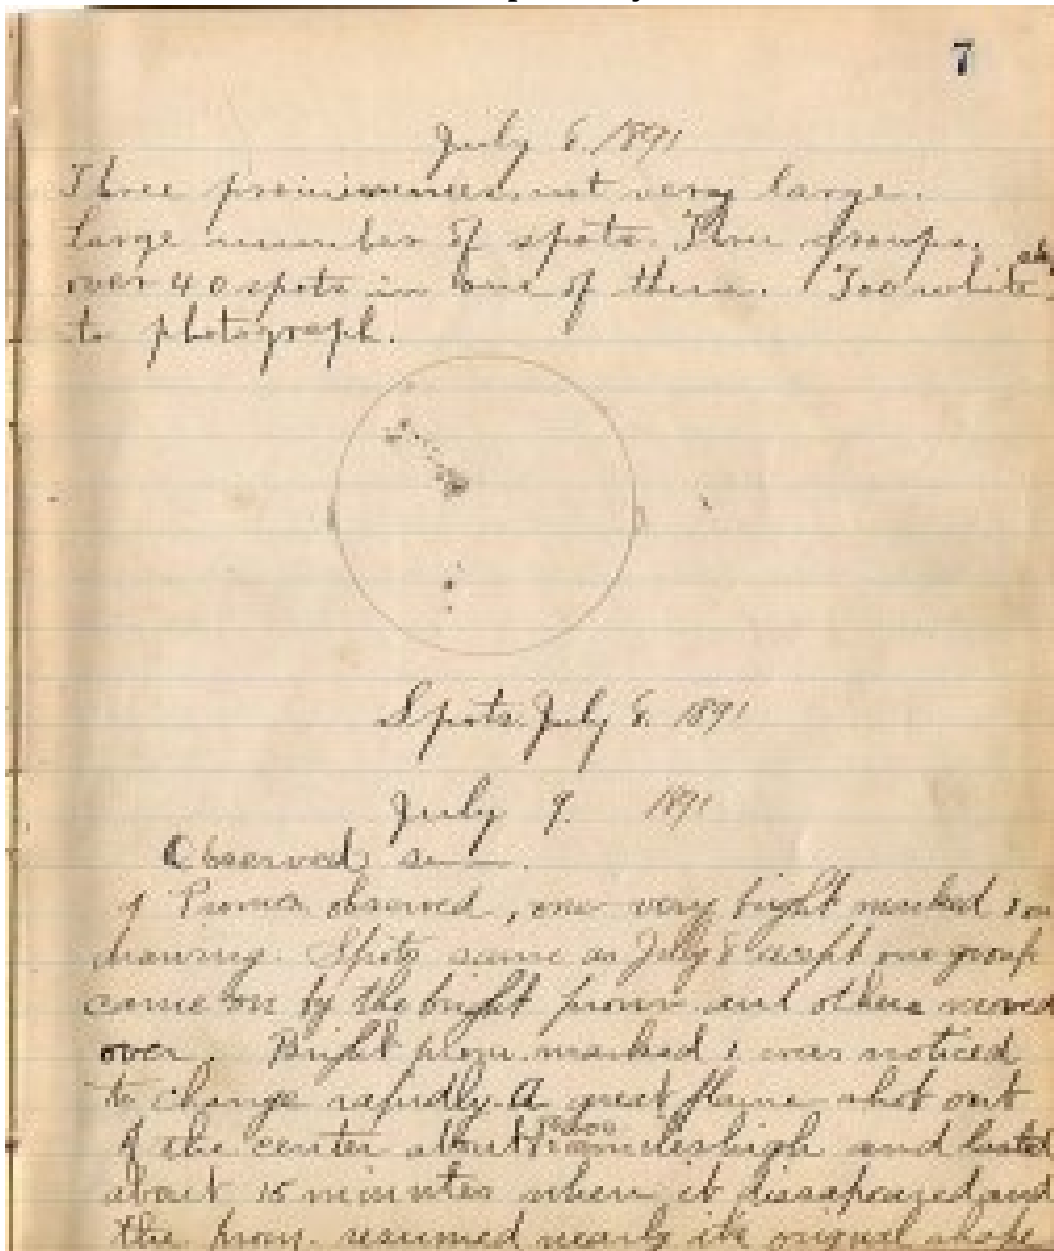 7
July 8. 1891
Three prominences, not very large.
Large number of spots. Three groups.
over 40 spots in one of them. Too white
to photograph.
Spots July 8. 1891
July 9. 1891
Observed
Proms. observed, one very bright marked 1 on
drawing. Spots same as July 8 except one group
came on by the bright prom and others moved
over. Bright prom. marked 1 was noticed
to change rapidly. A great flame shot out
of the center about miles high and lasted
about 15 minutes when it disappeared and
the prom. resumed nearly its original shape